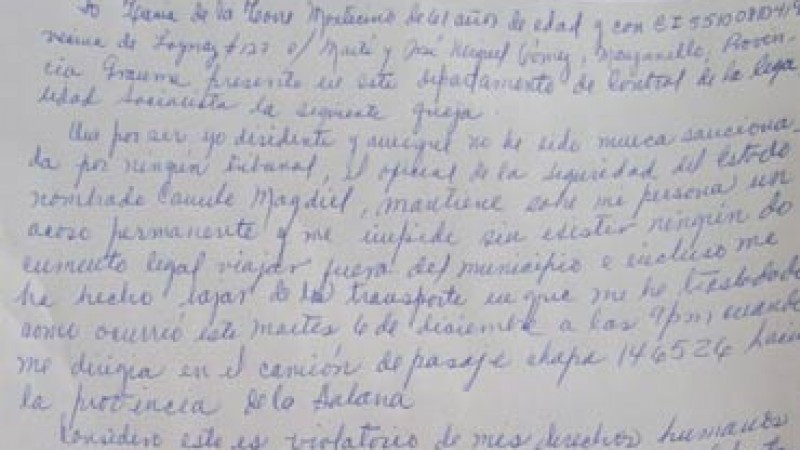 Yo Tania de la Torre Montesino de 61 años de edad y con CI 551008
vecina de Loynaz #127 e/ Martí y José Miguel Gómez, Manzanillo, Proven-
cia Granma presento en este departamento de Control de la lega
lidad Socialista la siguiente queja.
Que por ser yo disidente y aunque no he sido nunca sanciona-
da por ningún tribunal, el oficial de la seguridad del Estado
nombrado Camilo Magdiel, mantiene sobre mi persona un
acoso permanente y me impide sin existir ningún do
cumento legal viajar fuera del municipio e incluso me
ha hecho bajar de la transporte en que me he trasladado
como ocurrió este martes 6 de diciembre a las 9pm cuando
me dirigía en el camión de pasaje chapa 146526 hacia
la provincia de la Habana
Considero este es violatorio de mis derechos humanos